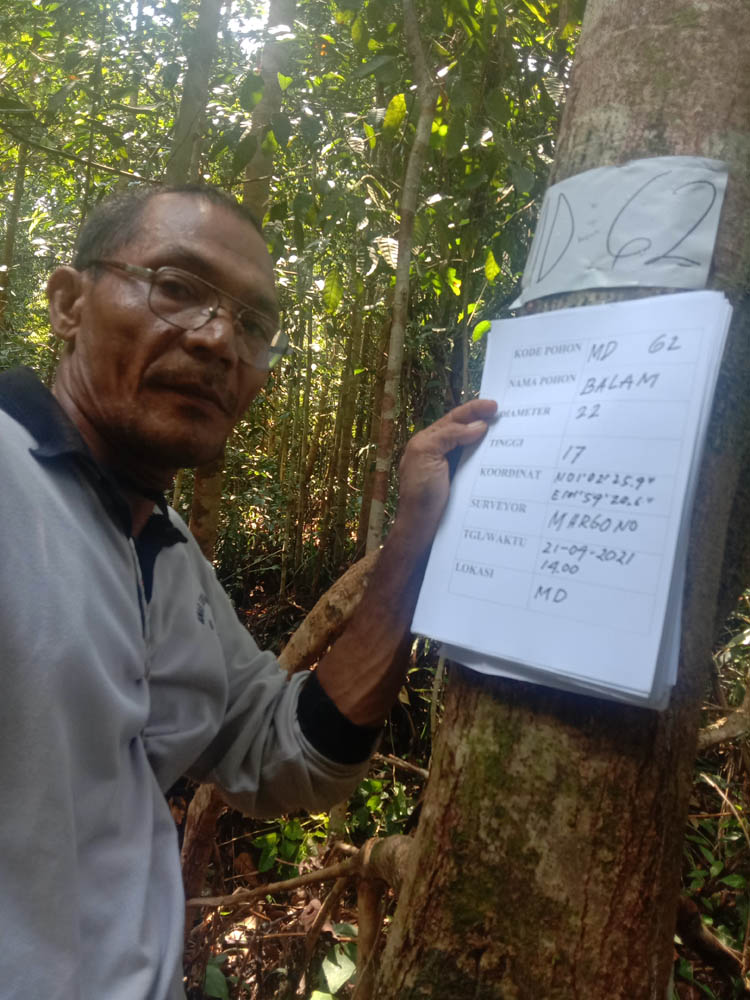 MD-62
KODE POHON MD 62
NAMA POHON BALAM
DIAMETER 22
TINGGI 17
KOORDINAT N01°02'25.9"
E101°59'20.6"
SURVEYOR MARGONO
TGL/WAKTU 21-09-2021
14.00
LOKASI MD